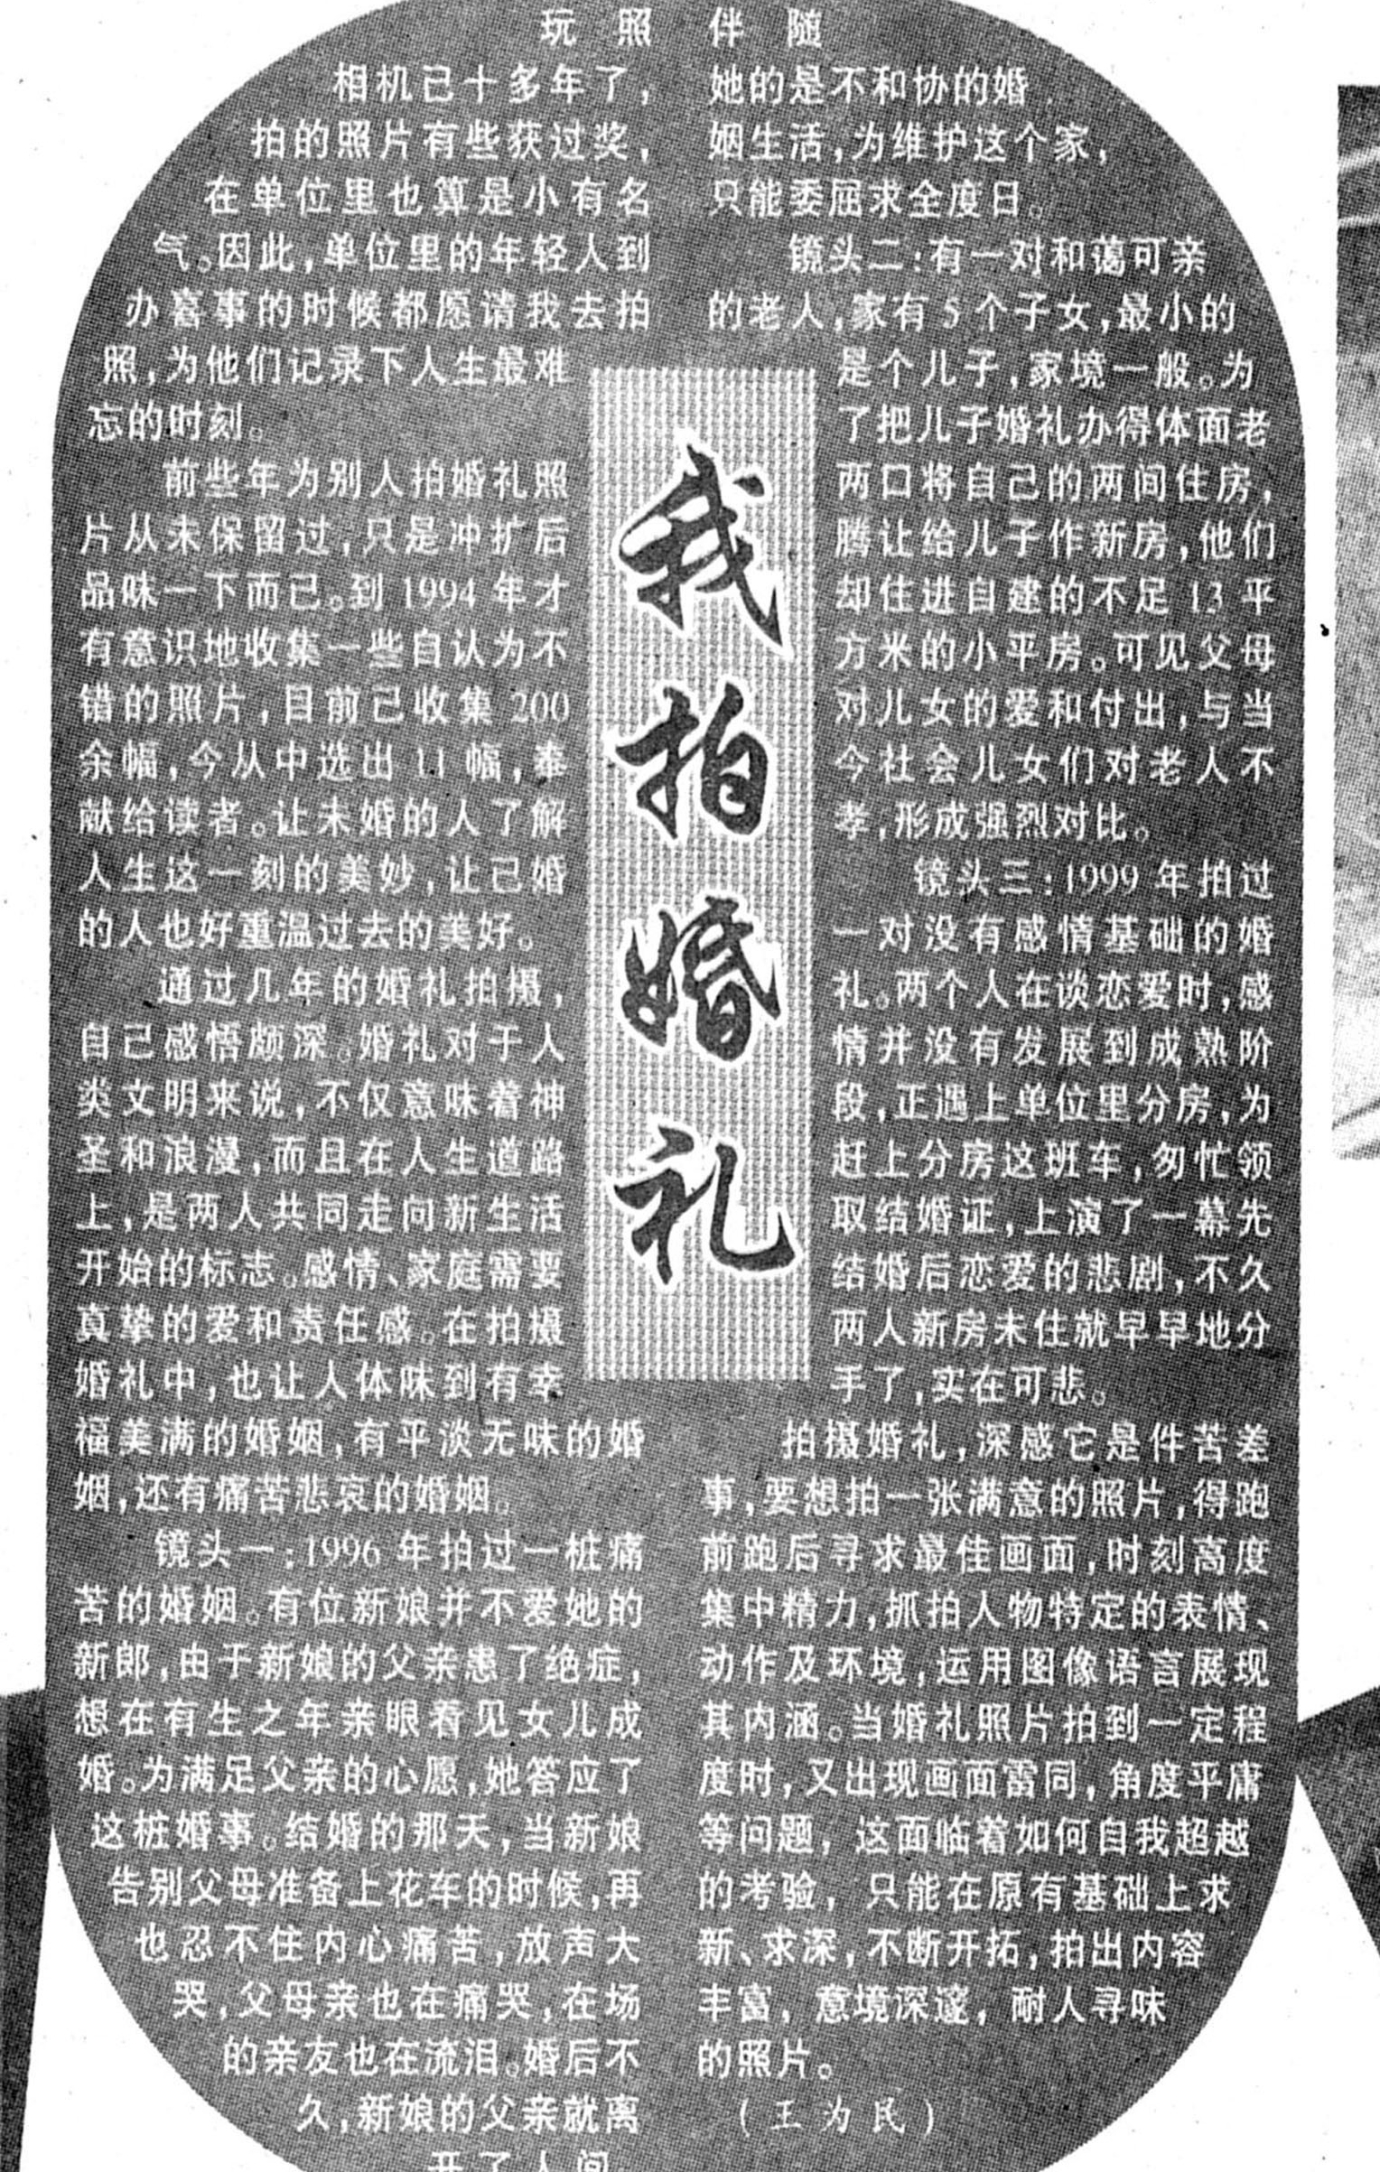 我拍婚礼
玩照
相机已十多年了，
拍的照片有些获过奖，
在单位里也算是小有名
气。因此，单位里的年轻人到
办喜事的时候都愿请我去拍
照，为他们记录下人生最难
忘的时刻。
前些年为别人拍婚礼照
片从未保留过，只是冲扩后
品味一下而已。到1994年才
有意识地收集一些自认为不
错的照片，目前已收集200
余幅，今从中选出11幅，奉
献给读者。让未婚的人了解
人生这一刻的美妙，让已婚
的人也好重温过去的美好。
通过几年的婚礼拍摄，
自己感悟颇深。婚礼对于人
类文明来说，不仅意味着神
圣和浪漫，而且在人生道路
上，是两人共同走向新生活
开始的标志。感情、家庭需要
真挚的爱和责任感。在拍摄
婚礼中，也让人体味到有幸
福美满的婚姻，有平淡无味的婚
姻，还有痛苦悲哀的婚姻。
镜头一：1996年拍过一桩痛
苦的婚姻。有位新娘并不爱她的
新郎，由于新娘的父亲患了绝症，
想在有生之年亲眼看见女儿成
婚。为满足父亲的心愿，她答应了
这桩婚事。结婚的那天，当新娘
告别父母准备上花车的时候，再
也忍不住内心痛苦，放声大
哭，父母亲也在痛哭，在场
的亲友也在流泪。婚后不
久，新娘的父亲就离
开了人间。
伴随
她的是不和协的婚
姻生活，为维护这个家，
只能委屈求全度日。
镜头二：有一对和蔼可亲
的老人，家有5个子女，最小的
是个儿子，家境一般。为
了把儿子婚礼办得体面老
两口将自己的两间住房，
腾让给儿子作新房，他们
却住进自建的不足13平
方米的小平房。可见父母
对儿女的爱和付出，与当
今社会儿女们对老人不
孝，形成强烈对比。
镜头三：1999年拍过
一对没有感情基础的婚
礼。两个人在谈恋爱时，感
情并没有发展到成熟阶
段，正遇上单位里分房，为
赶上分房这班车，匆忙领
取结婚证，上演了一幕先
结婚后恋爱的悲剧，不久
两人新房未住就早早地分
手了，实在可悲。
拍摄婚礼，深感它是件苦差
事，要想拍一张满意的照片，得跑
前跑后寻求最佳画面，时刻高度
集中精力，抓拍人物特定的表情、
动作及环境，运用图像语言展现
其内涵。当婚礼照片拍到一定程
度时，又出现画面雷同，角度平庸
等问题，这面临着如何自我超越
的考验，只能在原有基础上求
新、求深，不断开拓，拍出内容
丰富，意境深邃，耐人寻味
的照片。
（王为民）